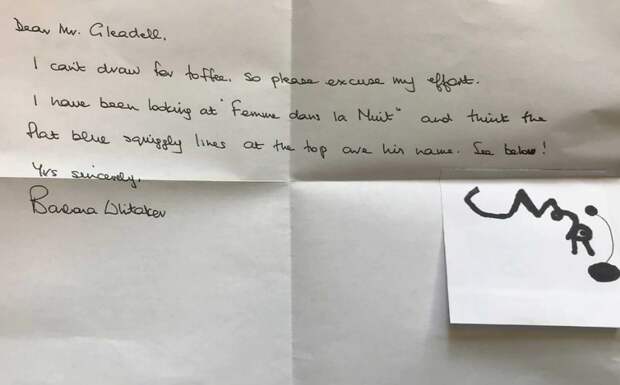 Dear Mr. Gleadell,
I can't draw for toffee. So please excuse my effort.
I have been looking at "Femme dans la Nuit" and think the
flat blue squiggly lines at the top are his name. See below!
Yrs sincerely,
Barbara Whitaker